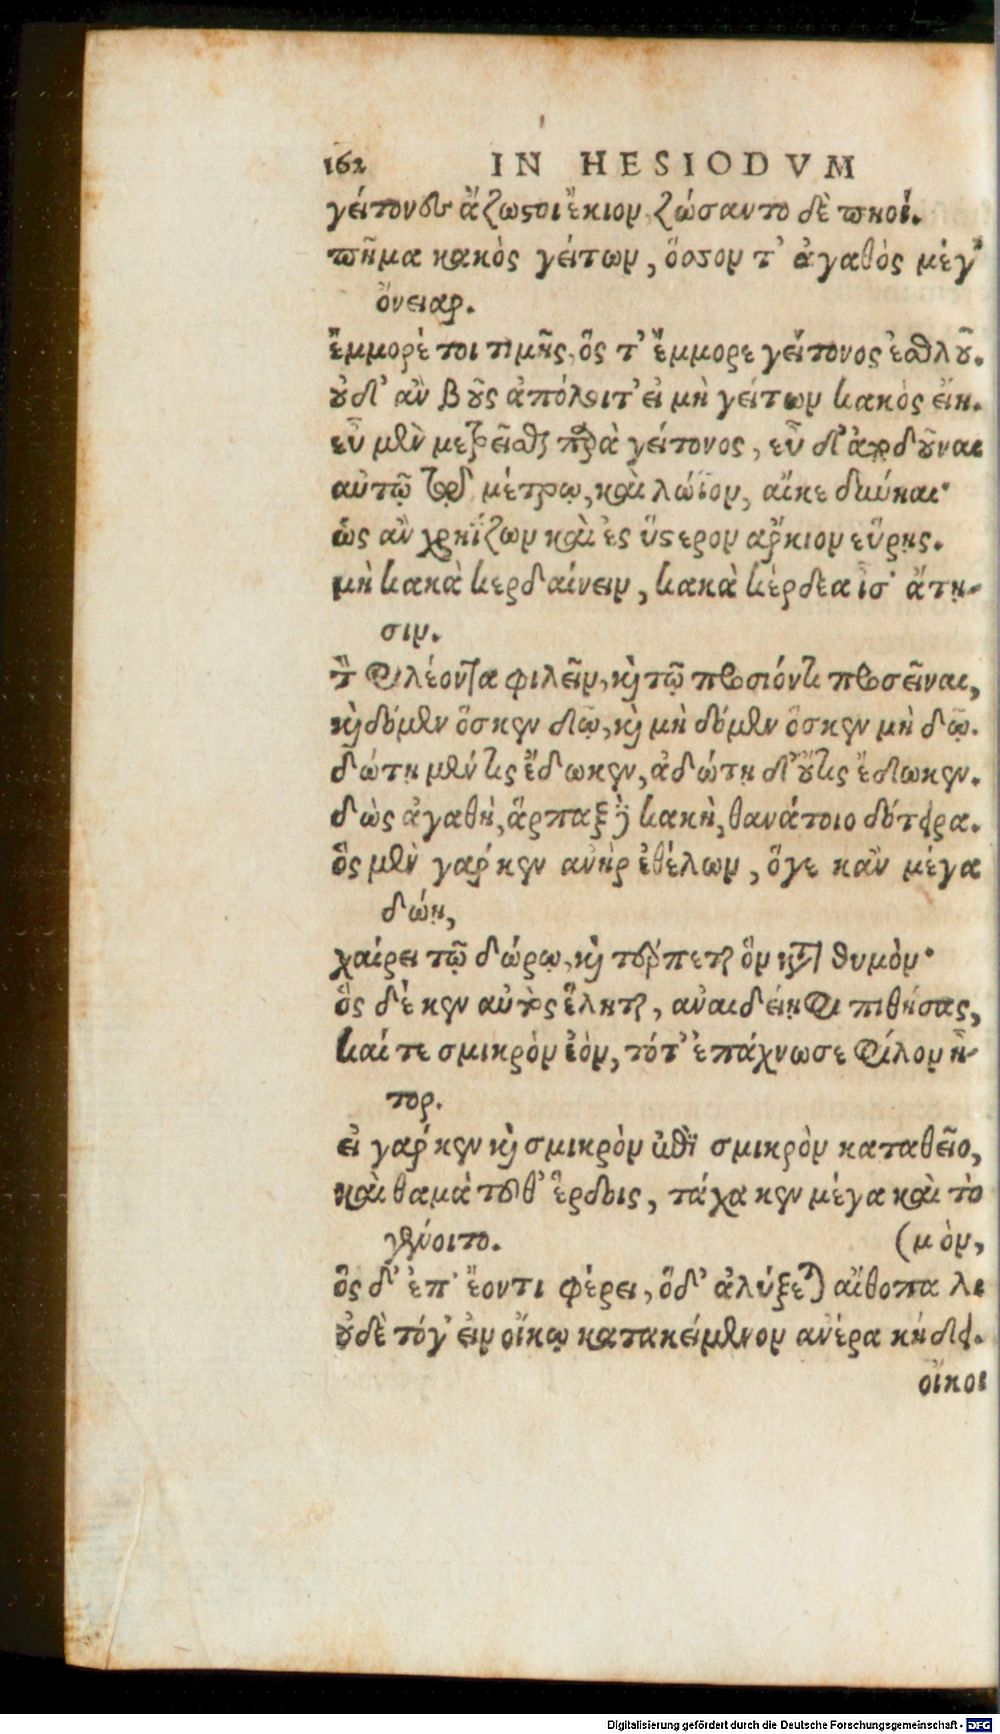 162 IN HESIODVM
γείτονες ἄζωςοι ἔκιον, ζώσαντο δὲ πηοί.
πῆμα κακὸς γείτων, ὅσσον τ' ἀγαθὸς μέγ'
ὄνειαρ.
ἔμμορέ τοι τιμῆς, ὅς τ' ἔμμορε γείτονος ἐσθλοῦ.
οὐδ' ἂν βοῦς ἀπόλοιτ' εἰ μὴ γείτων κακὸς εἴη.
εὖ μὲν μετρεῖσθαι παρὰ γείτονος, εὖ δ' ἀποδοῦναι
αὐτῷ τῷ μέτρῳ, καὶ λώϊον, αἴκε δύνηαι·
ὡς ἂν χρηΐζων καὶ ἐς ὕςερον ἄρκιον εὕρῃς.
μὴ κακὰ κερδαίνειν, κακὰ κέρδεα ἶσ' ἄτῃ-
σιν.
τὸν φιλέοντα φιλεῖν, καὶ τῷ προσιόντι προσεῖναι,
καὶ δόμεν ὅς κεν δῷ, καὶ μὴ δόμεν ὅς κεν μὴ δῷ.
δώτῃ μέν τις ἔδωκεν, ἀδώτῃ δ' οὔτις ἔδωκεν.
δὼς ἀγαθὴ, ἅρπαξ δὲ κακὴ, θανάτοιο δότειρα.
ὃς μὲν γάρ κεν ἀνὴρ ἐθέλων, ὅγε κἂν μέγα
δώῃ,
χαίρει τῷ δώρῳ, καὶ τέρπεται ὃν κατὰ θυμόν·
ὃς δέ κεν αὐτὸς ἕληται, ἀναιδείῃφι πιθήσας,
καί τε σμικρὸν ἐὸν, τότ' ἐπάχνωσε φίλον ἦ-
τορ.
εἰ γάρ κεν καὶ σμικρὸν ἐπὶ σμικρὸν καταθεῖο,
καὶ θαμὰ τοῦθ' ἕρδοις, τάχα κεν μέγα καὶ τὸ
γένοιτο. (μὸν,
ὃς δ' ἐπ' ἔοντι φέρει, ὅδ' ἀλύξεται αἴθοπα λι
οὐδὲ τόγ' εἰν οἴκῳ κατακείμενον ἀνέρα κήδει.
οἴκοι
Digitalisierung gefördert durch die Deutsche Forschungsgemeinschaft - DFG